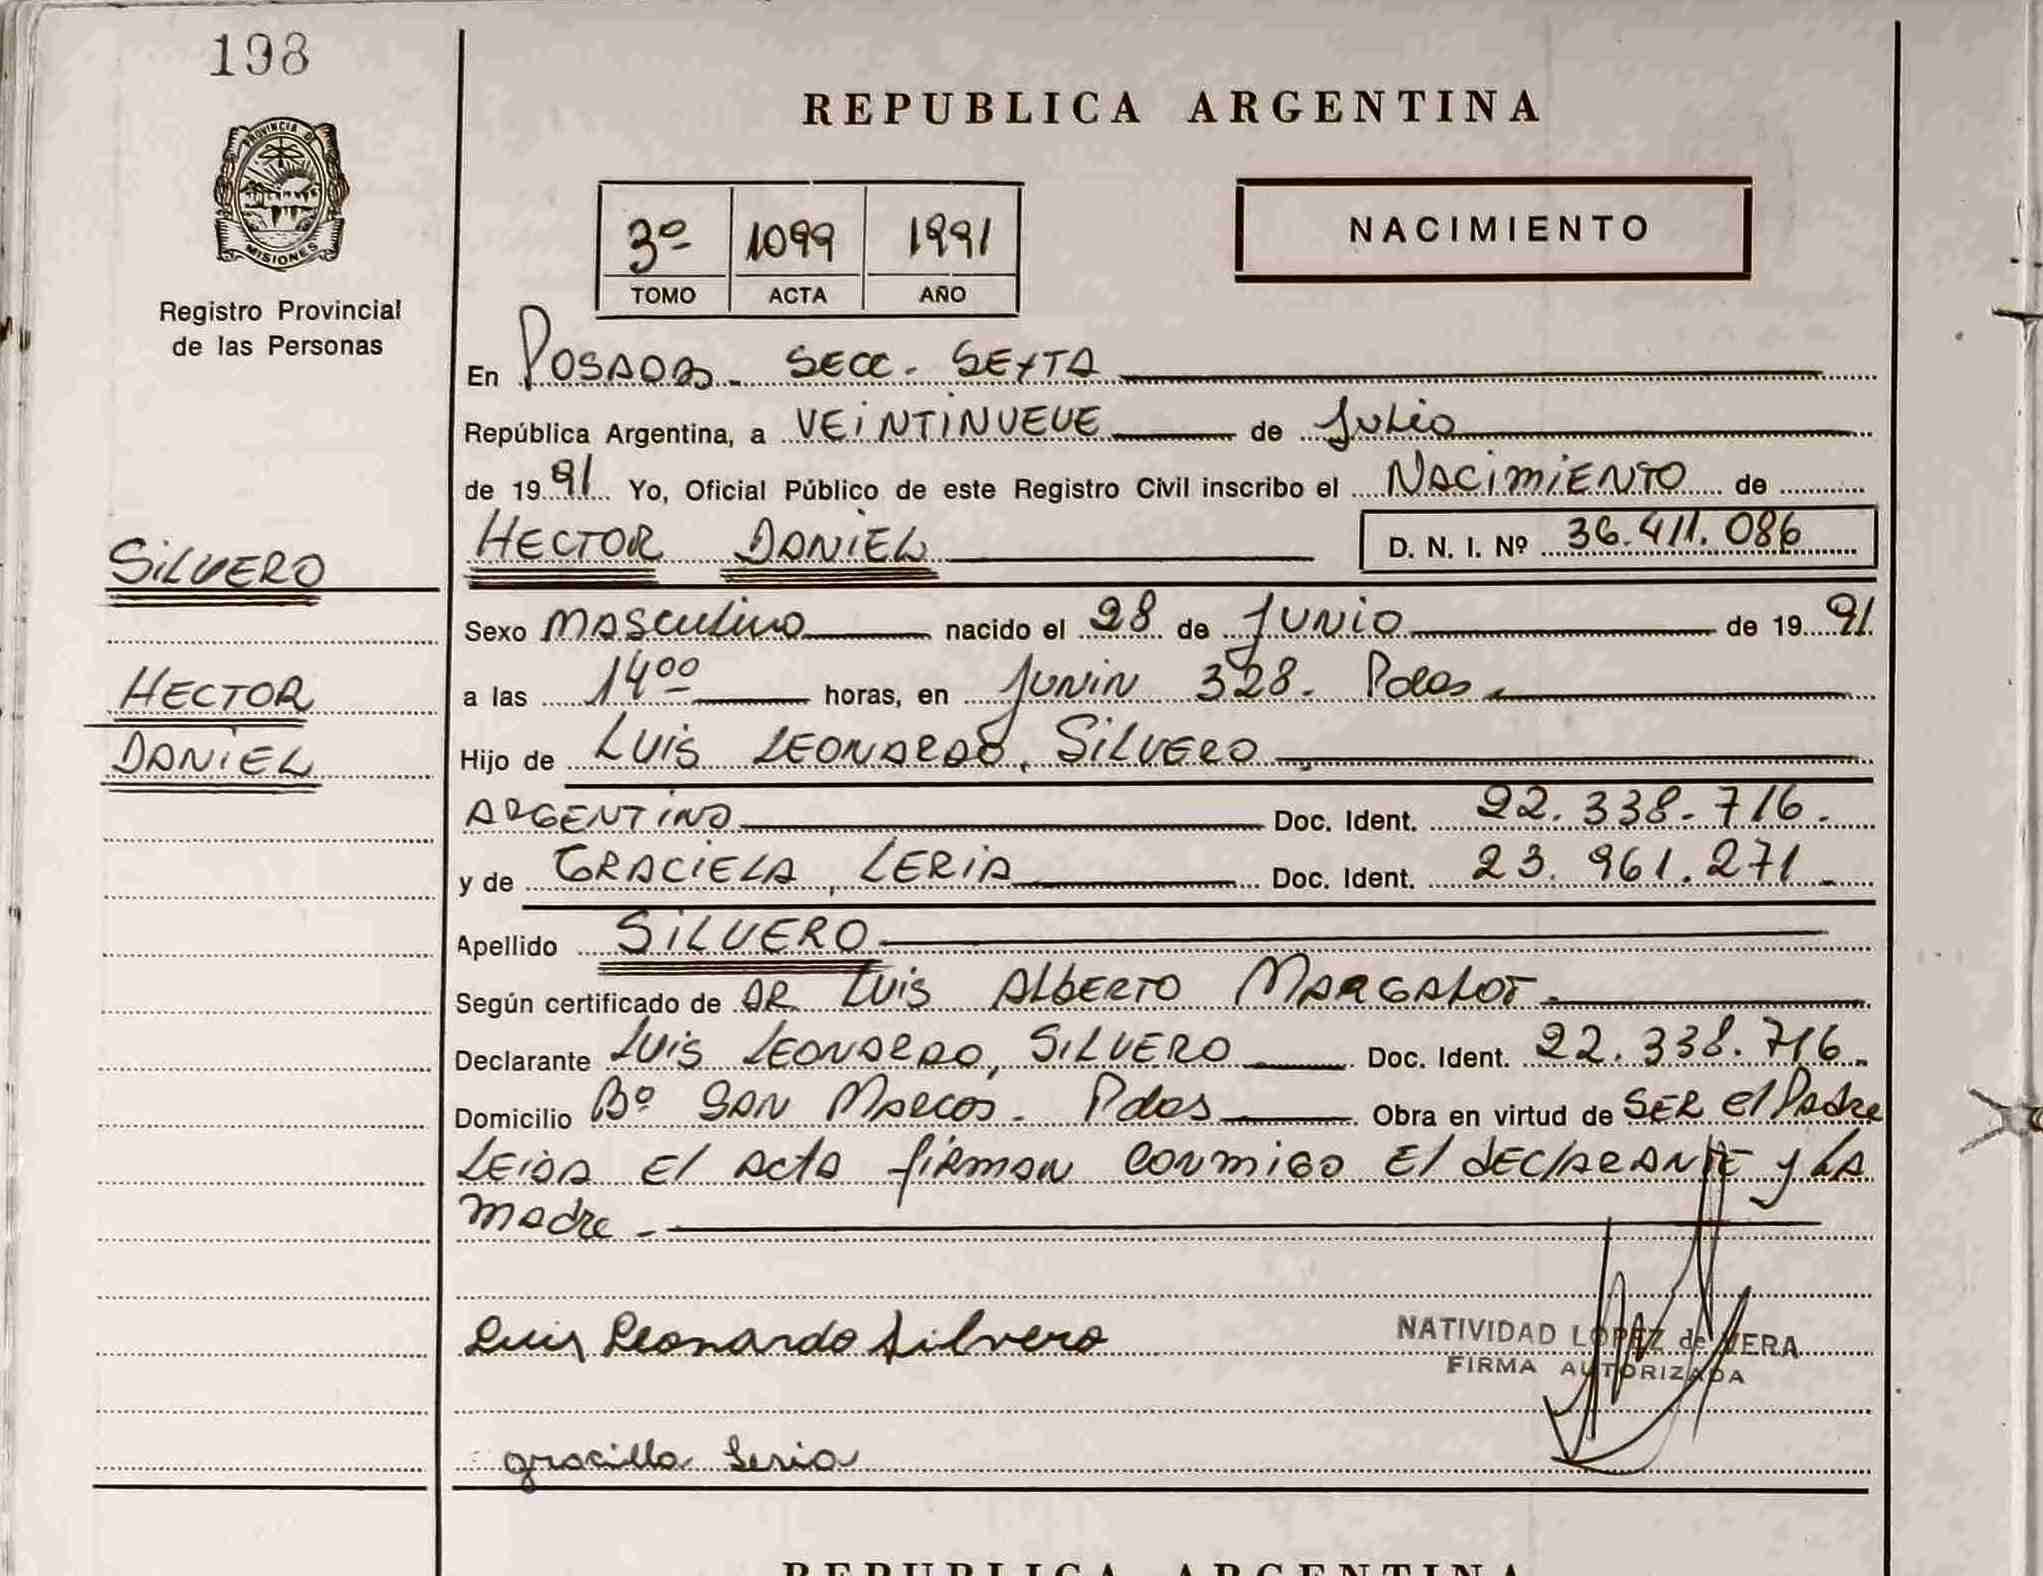 198
PROVINCIA DE
MISIONES
Registro Provincial
de las Personas
SILVERO
HECTOR
DANIEL
REPUBLICA ARGENTINA
3º 1099 1991
TOMO ACTA AÑO
NACIMIENTO
En POSADAS. SECC. SEXTA
República Argentina, a VEINTINUEVE de Julio
de 1991 Yo, Oficial Público de este Registro Civil inscribo el NACIMIENTO de
HECTOR DANIEL D. N. I. Nº 36.411.086
Sexo MASCULINO nacido el 28 de JUNIO de 1991
a las 14ºº horas, en JUNIN 328. Pdas.
Hijo de LUIS LEONARDO, SILVERO
ARGENTINO Doc. Ident. 22.338.716.
y de GRACIELA, LERIA Doc. Ident. 23.961.271
Apellido SILVERO
Según certificado de DR LUIS ALBERTO
Declarante LUIS LEONARDO, SILVERO Doc. Ident. 22.338.716.
Domicilio Bº SAN MARCOS. Pdas Obra en virtud de SER El Padre
LEIDA El acta firman conmigo El dEClARANTE y LA
madre.
Luis Leonardo Silvero
NATIVIDAD LOPEZ de VERA
FIRMA AUTORIZADA
graciella Leria
REPUBLICA ARGENTINA